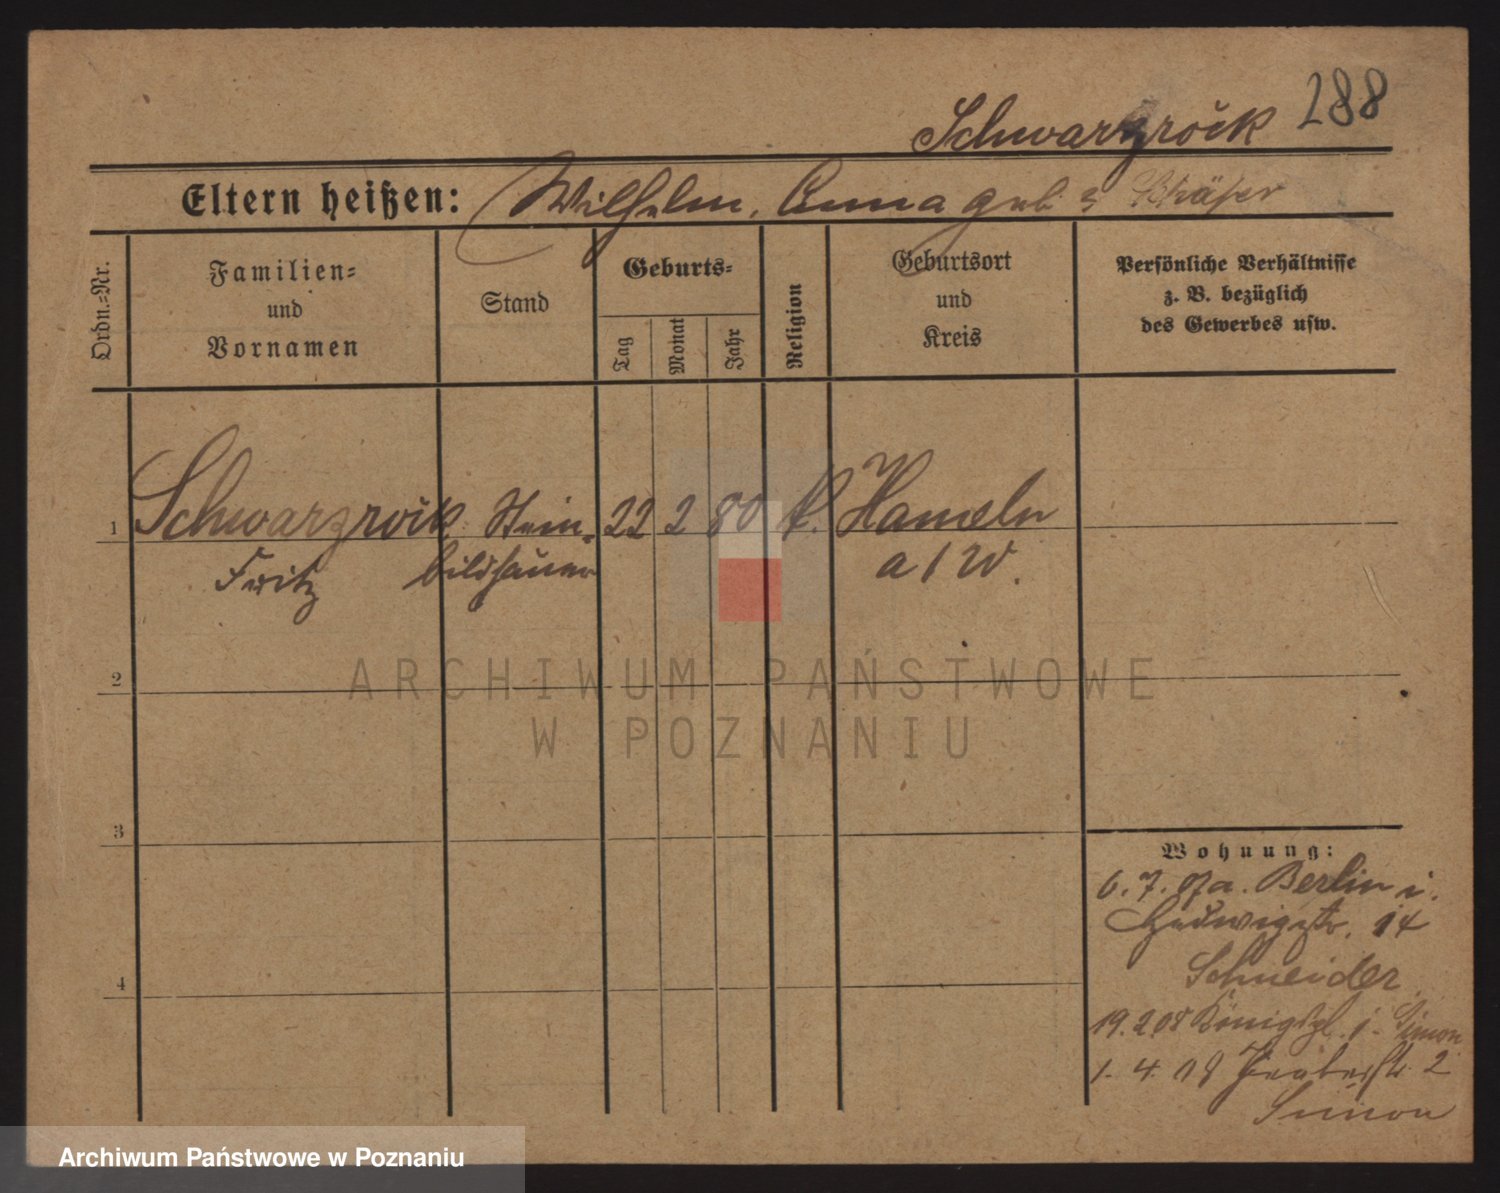 288
Schwarzrock
Eltern heißen: Wilhelm, Anna geb. Schäfer
Ordn.-Nr.
Familien-
und
Vornamen
Stand
Geburts-
Tag
Monat
Jahr
Religion
Geburtsort
und
Kreis
Persönliche Verhältnisse
z. B. bezüglich
des Gewerbes usw.
1 Schwarzrock Stein- 22 2 80 k. Hameln
Fritz bildhauer a/W.
2
3
4
Wohnung:
6. 7. 07 a. Berlin i.
Hedwigstr. 14
Schneider
19. 2 08 Königspl. Simon
1. 4. 08 2
Simon
ARCHIWUM PAŃSTWOWE
W POZNANIU
Archiwum Państwowe w Poznaniu